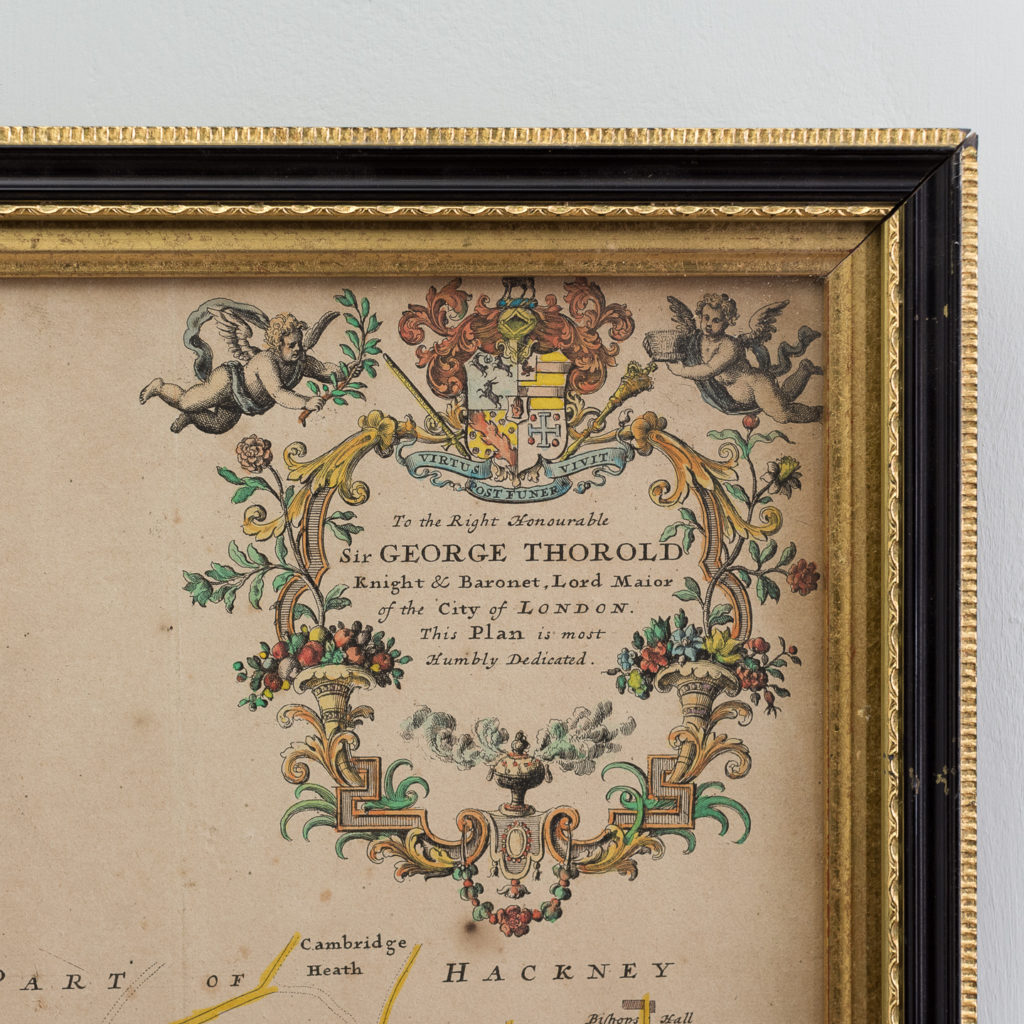 VIRTUS
VIVIT
POST FUNERA
To the Right Honourable
Sir GEORGE THOROLD
Knight & Baronet, Lord Maior
of the City of LONDON.
This Plan is most
Humbly Dedicated.
Cambridge
Heath
PART OF HACKNEY
Biſhops Hall